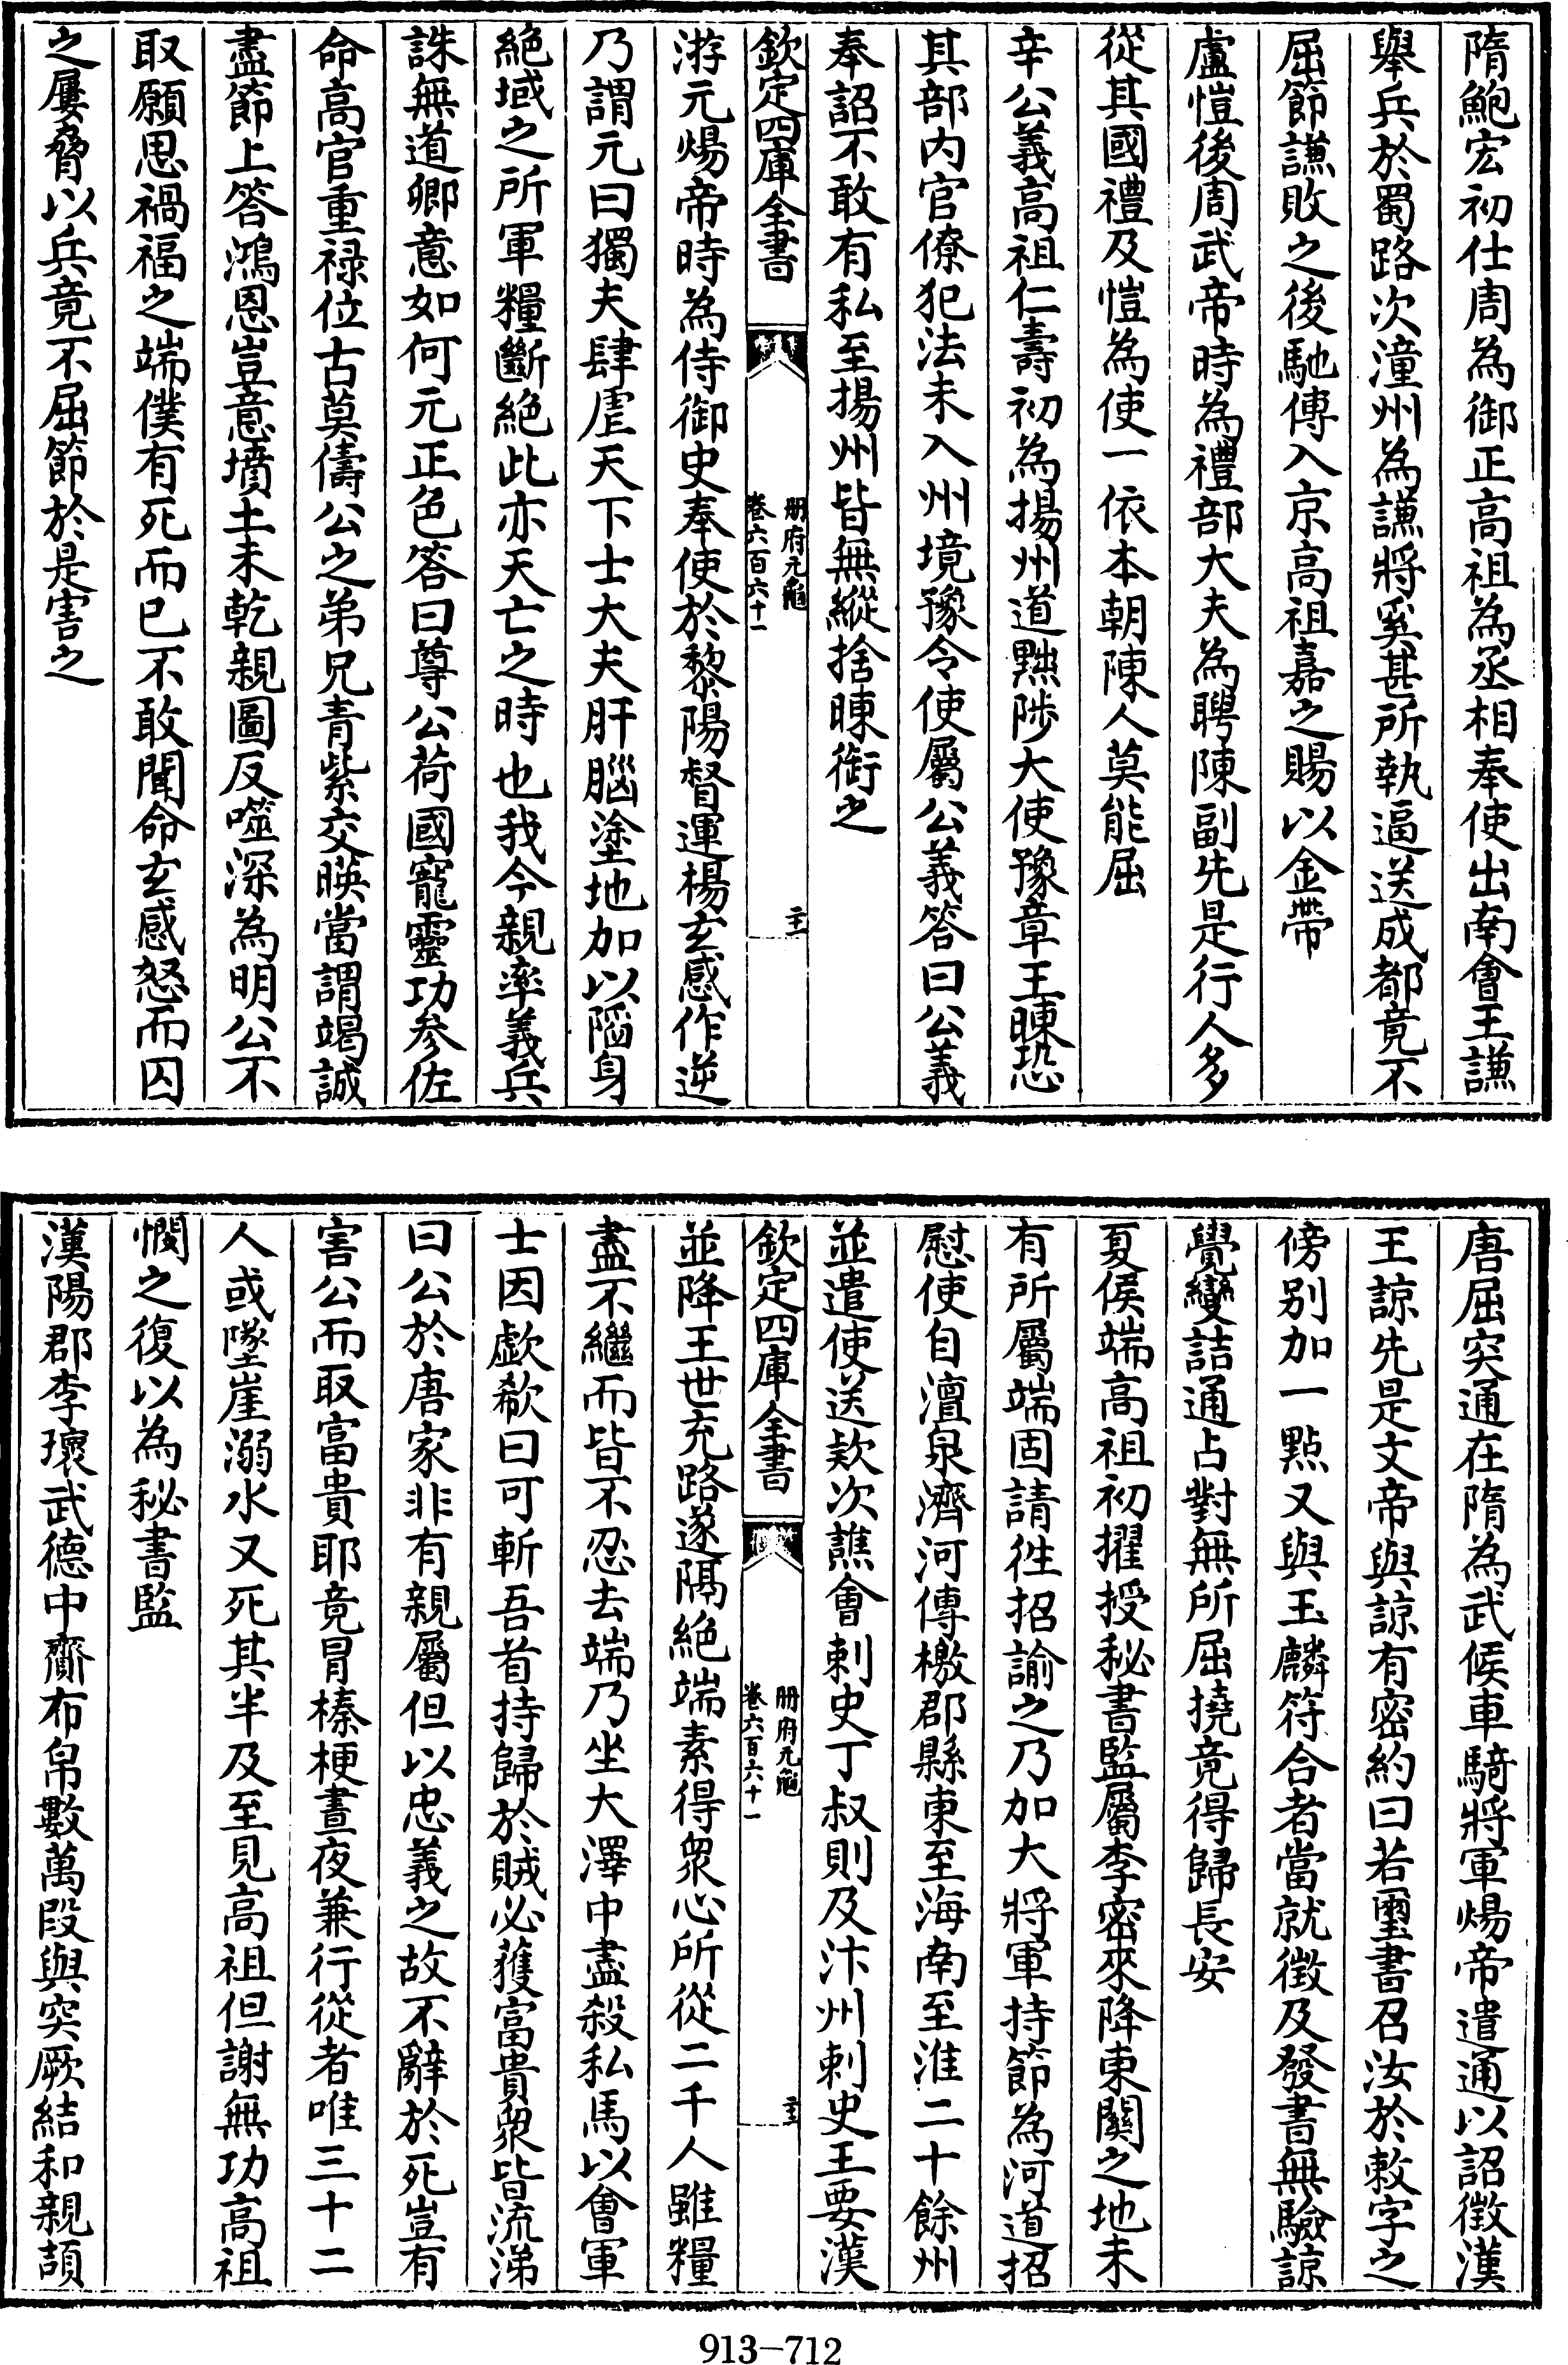 隋鮑宏初仕周為御正高祖為丞相奉使出南會王謙
舉兵於蜀路次潼州為謙將奚甚所執逼送成都竟不
屈節謙敗之後馳傳入京高祖嘉之賜以金帶
盧愷後周武帝時為禮部大夫為聘陳副先是行人多
從其國禮及愷為使一依本朝陳人莫能屈
辛公義高祖仁壽初為揚州道黜陟大使豫章王暕恐
其部内官僚犯法未入州境豫令使屬公義答曰公義
奉詔不敢有私至揚州皆無縱捨暕銜之
欽定四庫全書
冊府元龜
卷六百六十一
二十一
游元煬帝時為侍御史奉使於黎陽督運楊玄感作逆
乃謂元曰獨夫肆虐天下士大夫肝腦塗地加以陷身
絶域之所軍糧斷絶此亦天亡之時也我今親率義兵
誅無道卿意如何元正色答曰尊公荷國寵靈功參佐
命高官重禄位古莫儔公之弟兄青紫交暎當謂竭誠
盡節上答鴻恩豈意墳土未乾親圖反噬深為明公不
取願思禍福之端僕有死而已不敢聞命玄感怒而囚
之屢脅以兵竟不屈節於是害之
唐屈突通在隋為武候車騎將軍煬帝遣通以詔徴漢
王諒先是文帝與諒有密約曰若璽書召汝於敕字之
傍别加一點又與玉麟符合者當就徴及發書無驗諒
覺變詰通占對無所屈撓竟得歸長安
夏侯端高祖初擢授秘書監屬李密來降東關之地未
有所屬端固請往招諭之乃加大將軍持節為河道招
慰使自澶泉濟河傳檄郡縣東至海南至淮二十餘州
並遣使送欵次譙會刺史丁叔則及汴州刺史王要漢
欽定四庫全書
冊府元龜
卷六百六十一
二十二
並降王世充路遂隔絶端素得衆心所從二千人雖糧
盡不繼而皆不忍去端乃坐大澤中盡殺私馬以會軍
士因歔欷曰可斬吾首持歸於賊必獲富貴衆皆流涕
曰公於唐家非有親屬但以忠義之故不辭於死豈有
害公而取富貴耶竟冒榛梗晝夜兼行從者唯三十二
人或墜崖溺水又死其半及至見高祖但謝無功高祖
憫之復以為秘書監
漢陽郡李瓌武德中齎布帛數萬段與突厥結和親頡
913-712